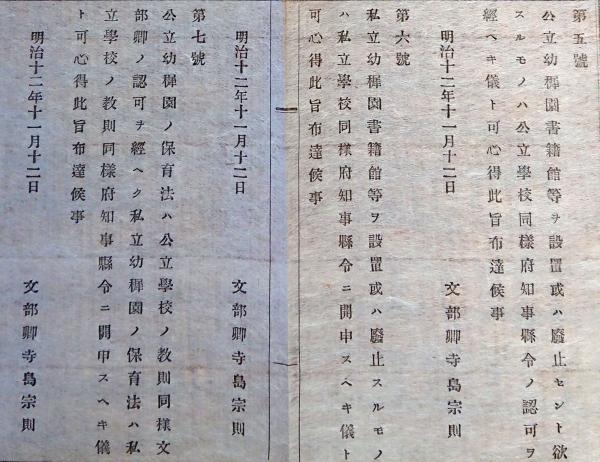 第五號
公立幼稺園書籍館等ヲ設置或ハ廢止セント欲
スルモノハ公立學校同樣府知事縣令ノ認可ヲ
經ヘキ儀ト可心得此旨布達候事
明治十二年十一月十二日 文部卿寺島宗則
第六號
私立幼稺園書籍館等ヲ設置或ハ廢止スルモノ
ハ私立學校同樣府知事縣令ニ開申スヘキ儀ト
可心得此旨布達候事
明治十二年十一月十二日 文部卿寺島宗則
第七號
公立幼稺園ノ保育法ハ公立學校ノ教則同樣文
部卿ノ認可ヲ經ヘク私立幼稺園ノ保育法ハ私
立學校ノ教則同樣府知事縣令ニ開申スヘキ儀
ト可心得此旨布達候事
明治十二年十一月十二日 文部卿寺島宗則